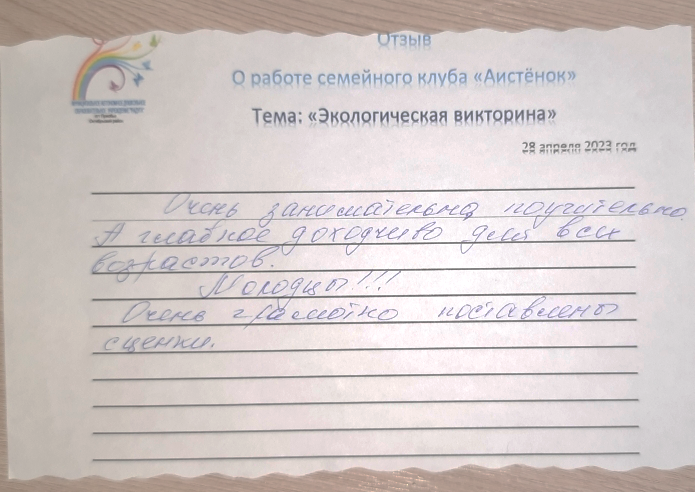 Отзыв
О работе семейного клуба «Аистёнок»
Тема: «Экологическая викторина»
28 апреля 2023 год
Очень занимательно, поучительно.
А главное доходчиво для всех
возрастов.
Молодцы!!!
Очень грамотно поставлены
сценки.